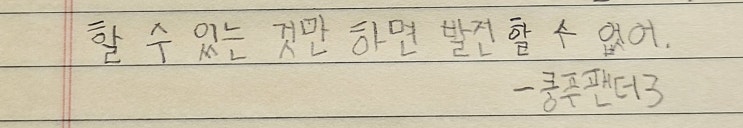 할 수 있는 것만 하면 발전할 수 없어.
-쿵푸팬더3